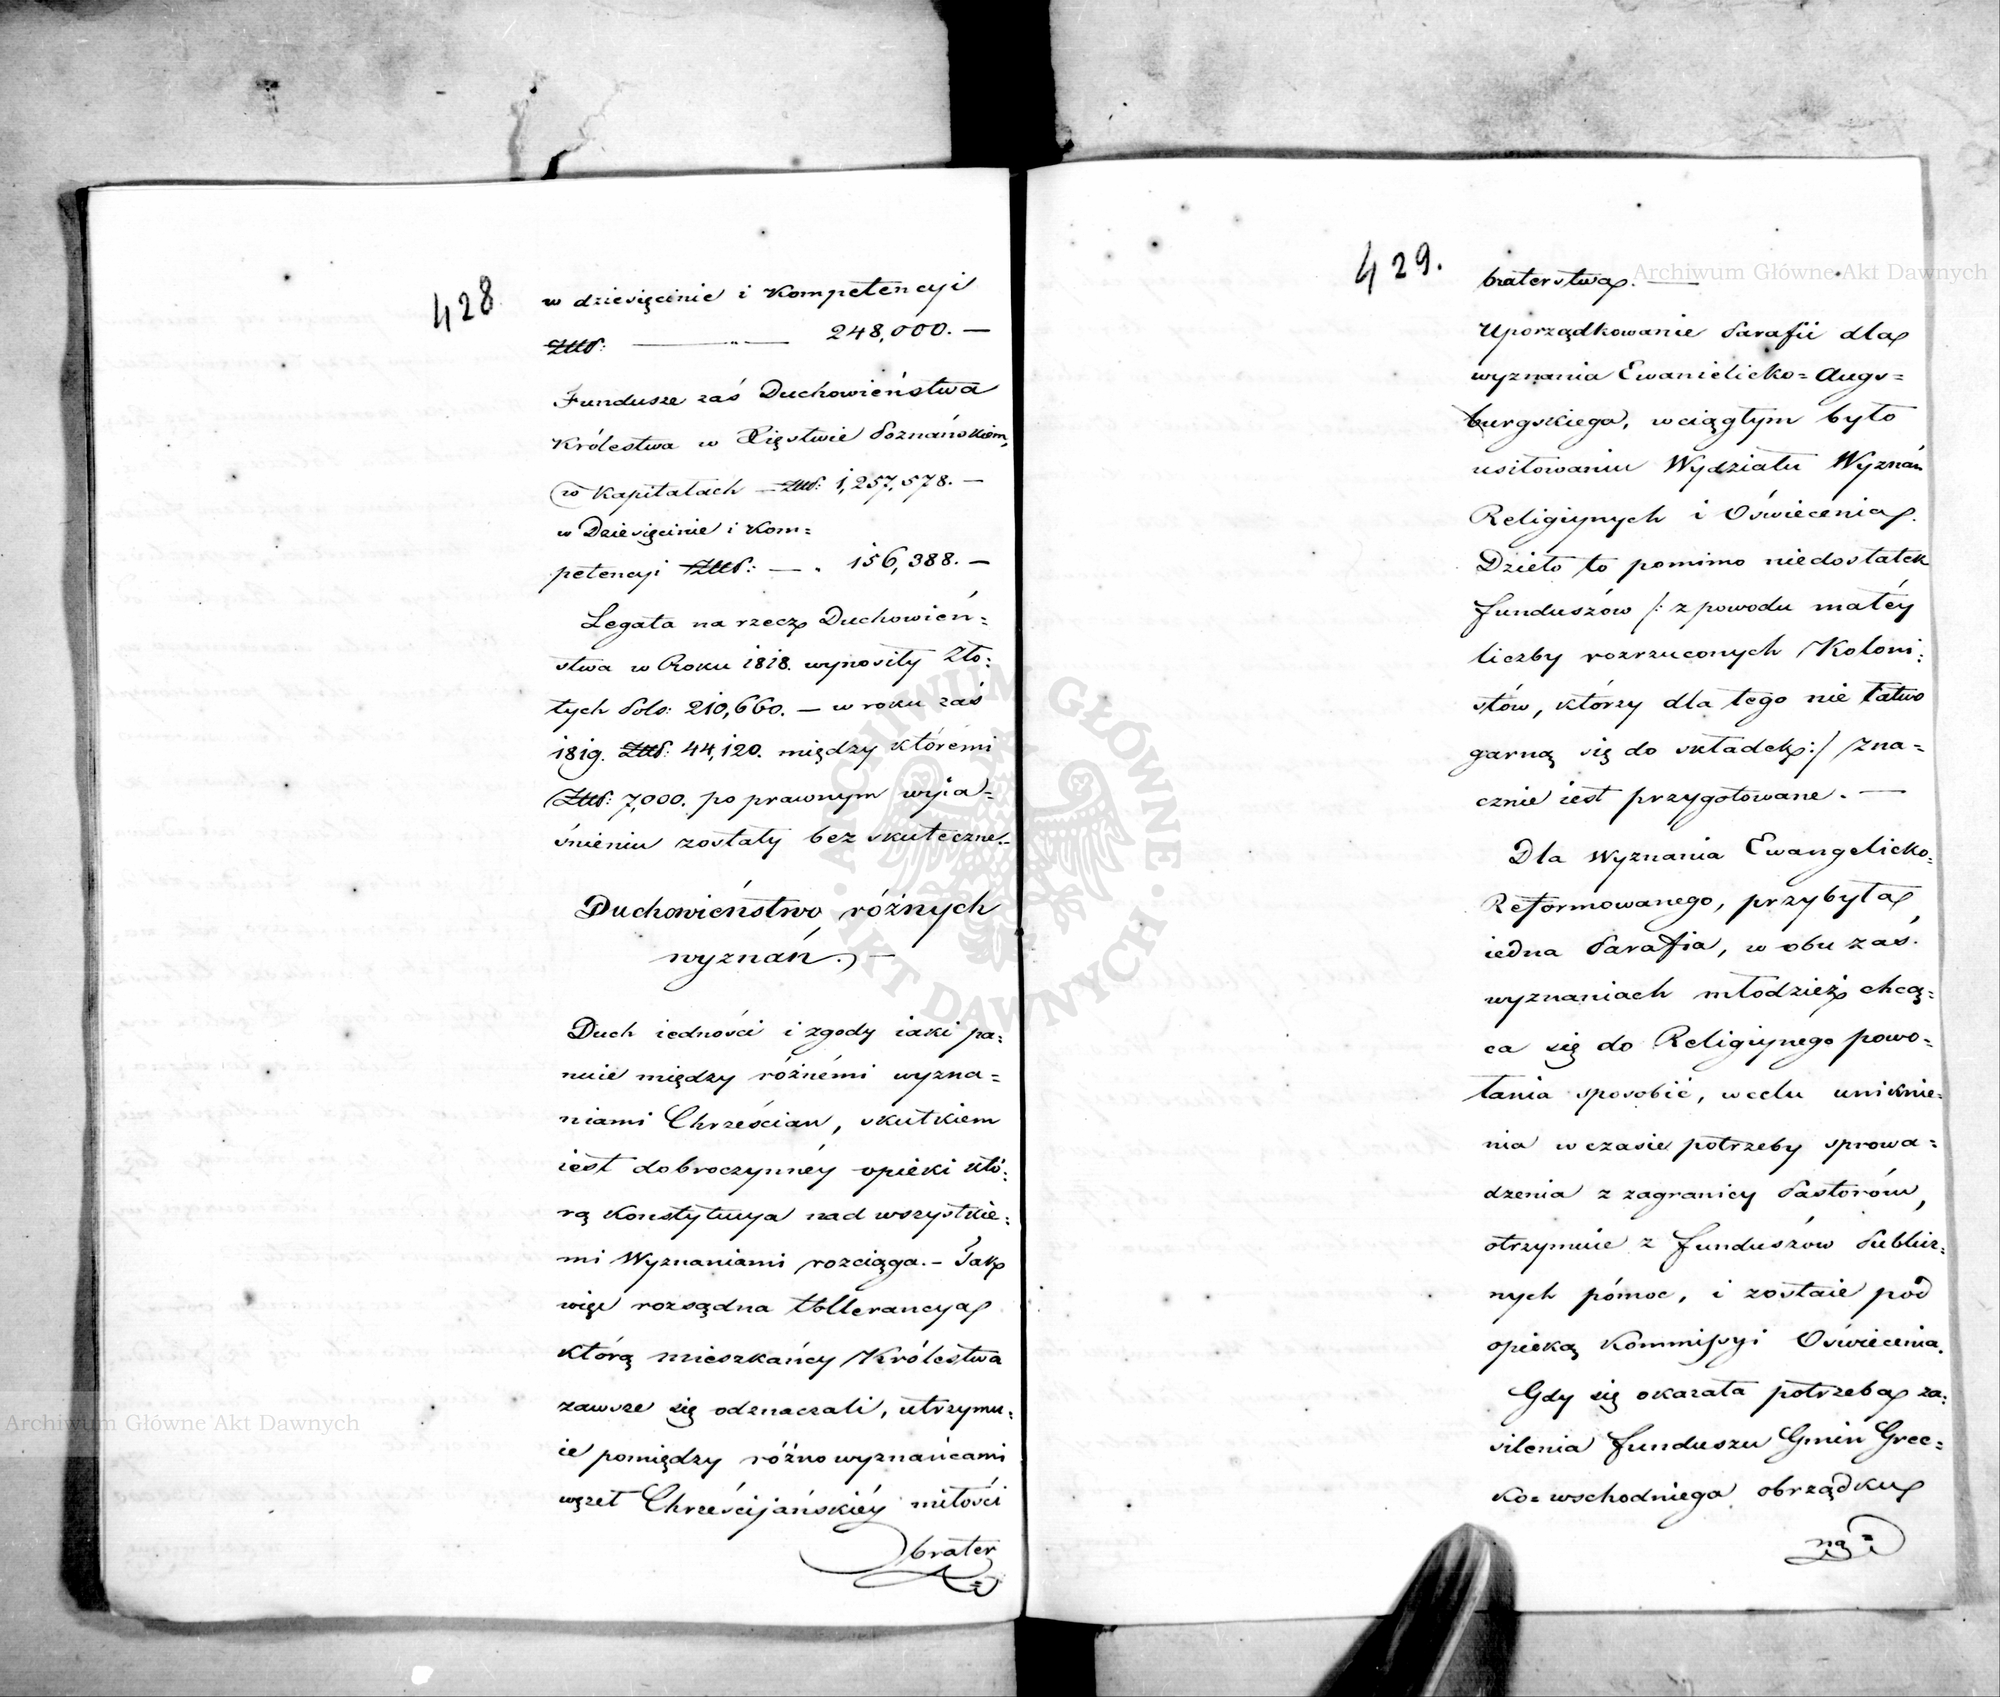 428
w dziesięcinie i Kompetencyi
Złłp: — „ — 248,000. —
Fundusze zaś Duchowieństwa
Królestwa w Xięstwie Poznańskiem,
w Kapitałach — Złłp: 1,257,578. —
w Dziesięcinie i Kom=
petencyi Złłp: — „ 156,388. —
Legata na rzecz Duchowień=
stwa w Roku 1818. wynosiły Zło=
tych Pols: 210,660. — w roku zaś
1819. Złłp: 44,120. między któremi
Złłp: 7,000. po prawnym wyia=
śnieniu zostały bez skuteczne.–
Duchowieństwo różnych
wyznań. —
Duch iedności i zgody iaki pa=
nuie między różnémi wyzna=
niami Chrześcian, skutkiem
iest dobroczynnéy opieki któ=
rą Konstytucya nad wszystkie=
mi Wyznaniami rozciąga. – Tak
więc rozsądna tollerancya
którą mieszkańcy Królestwa
zawsze się odznaczali, utrzymu=
ie pomiędzy różnowyznańcami
węzeł Chrześcijańskiéy miłości
brater=
429.
braterstwa. —
Uporządkowanie Parafii dla
wyznania Ewanielicko=Augs=
burgskiego, w ciągłym było
usiłowaniu Wydziału Wyznań
Religiynych i Oświecenia.
Dzieło to pomimo niedostatek
funduszów /: z powodu małéy
liczby rozrzuconych Koloni=
stów, którzy dla tego nie łatwo
garną się do składek :/ zna=
cznie iest przygotowane. —
Dla Wyznania Ewangelicko=
Reformowanego, przybyła
iedna Parafia, w obu zaś
wyznaniach młodzież chcą=
ca się do Religiynego powo=
łania sposobić, w celu uniknie=
nia w czasie potrzeby sprowa=
dzenia z zagranicy Pastorów,
otrzymuie z funduszów Publicz=
nych pómoc, i zostaie pod
opieką Kommissyi Oświecenia.
Gdy się okazała potrzeba za=
silenia funduszu Gmin Grec=
ko=wschodniego obrządku
na=
Archiwum Główne Akt Dawnych
Archiwum Główne Akt Dawnych
ARCHIWUM GŁÓWNE · AKT DAWNYCH ·